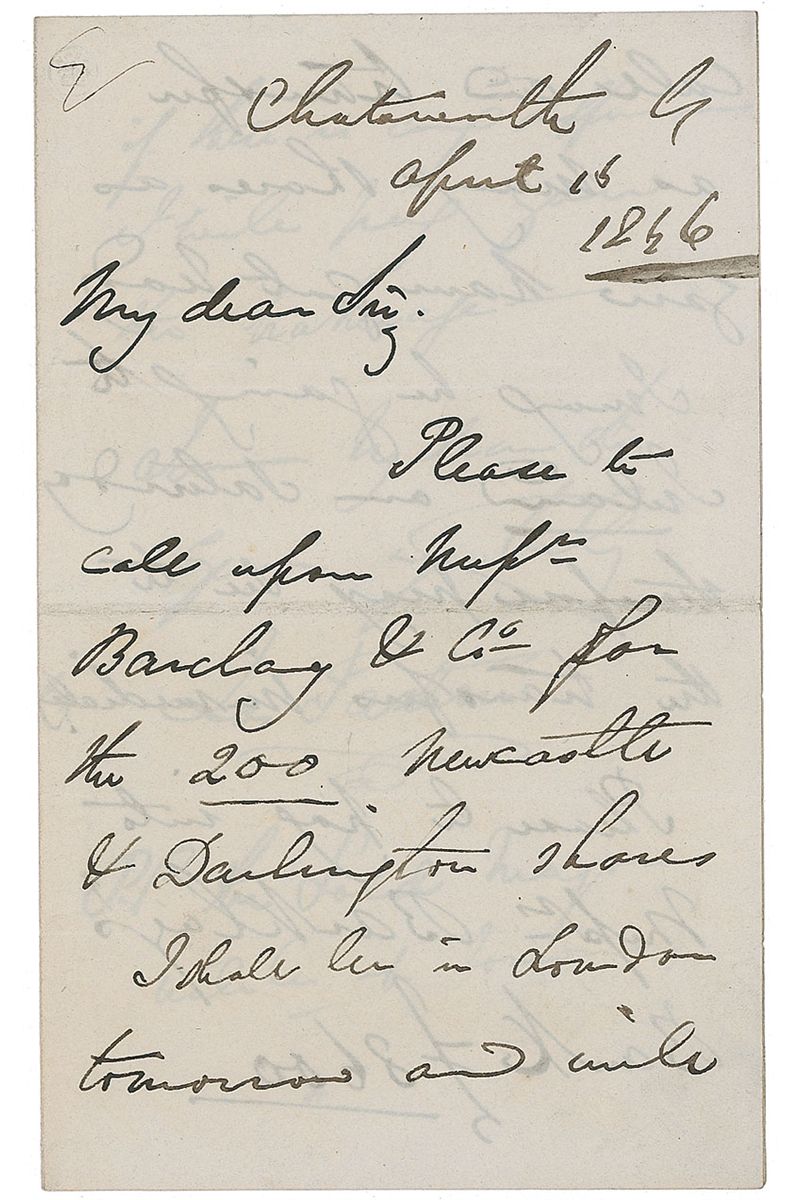 Chatsworth
April 15
1846
My dear Sir.
Please to
call upon Messrs
Barclay & Co for
the 200 Newcastle
& Darlington shares
I shall be in London
tomorrow and will